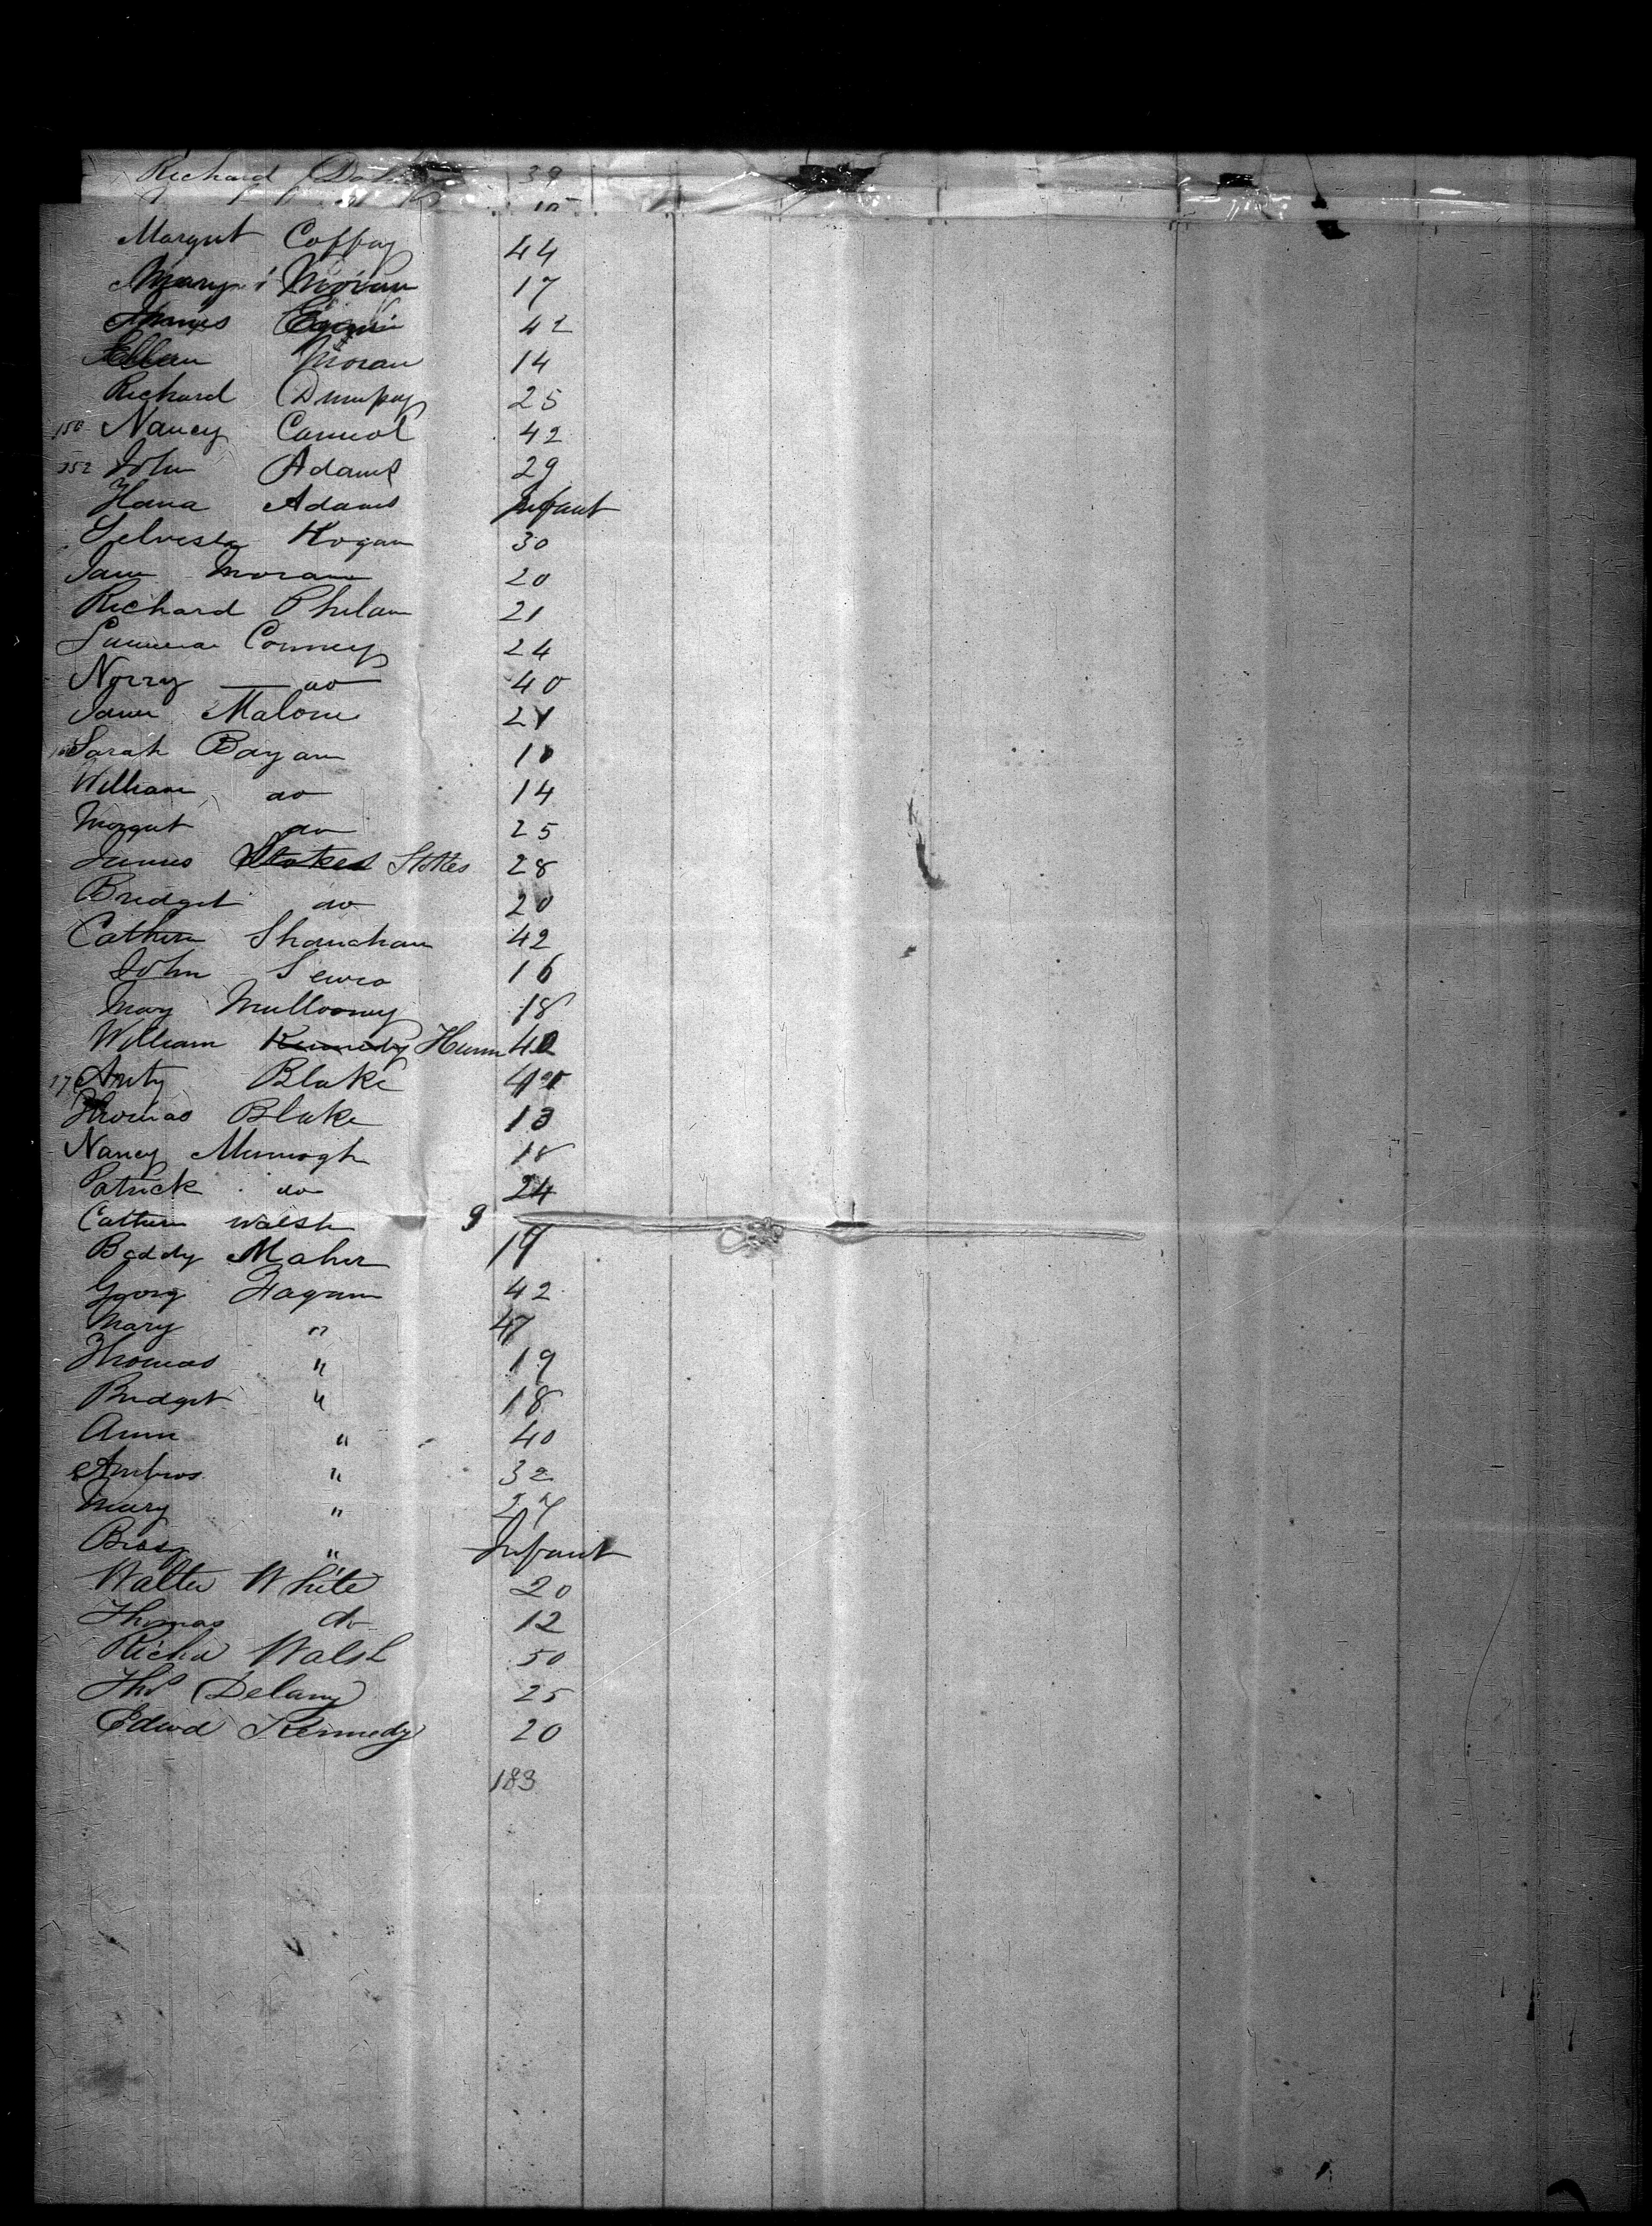 Richard 39
Margret Coffay 44
Mary Moran 17
James 42
Ellen Moran 14
Richard Dumpay 25
150 Nancy Carrol 42
152 John Adams 29
Hana Adams Infant
Selvesta Hogan 30
Jam Moran 20
Richard Phelan 21
Conney 24
Norry do 40
Jam Malone 21
Sarah Bayan 10
William do 14
Margret do 25
James Stokes Stokes 28
Bridget do 20
Cathern Shanahan 42
John 16
Mary Mullooney 18
William Kennedy Hunn 40
Anty Blake
Thomas Blake 13
Nancy Murnogh 18
Patrick do 24
Cathern Walsh 9
Boddy Maher 19
Georg Fagan 42
Mary " 47
Thomas " 19
Bridget " 18
Ann " 40
Ambros " 32
Mary " 27
" Infant
Walter White 20
Thomas do 12
Richd Walsh 50
Thos Delany 25
Edwd Kennedy 20
183